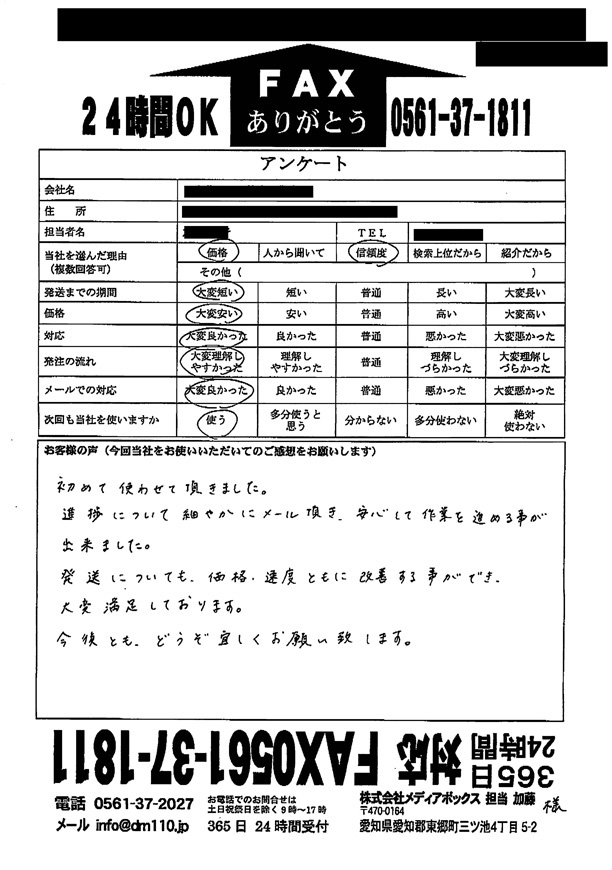 FAX
ありがとう
24時間OK
0561-37-1811
アンケート
会社名
住　所
担当者名 TEL
当社を選んだ理由（複数回答可） 価格 人から聞いて 信頼度 検索上位だから 紹介だから
その他（ ）
発送までの期間 大変短い 短い 普通 長い 大変長い
価格 大変安い 安い 普通 高い 大変高い
対応 大変良かった 良かった 普通 悪かった 大変悪かった
発注の流れ 大変理解しやすかった 理解しやすかった 普通 理解しづらかった 大変理解しづらかった
メールでの対応 大変良かった 良かった 普通 悪かった 大変悪かった
次回も当社を使いますか 使う 多分使うと思う 分からない 多分使わない 絶対使わない
お客様の声（今回当社をお使いいただいてのご感想をお願いします）
初めて使わせて頂きました。
進捗について細やかにメール頂き、安心して作業を進める事が
出来ました。
発送についても、価格・速度ともに改善する事ができ、
大変満足しております。
今後とも、どうぞ宜しくお願い致します。
365日24時間 対応 FAX0561-37-1811
電話 0561-37-2027
お電話でのお問合せは
土日祝祭日を除く9時～17時
メール info@dm110.jp
365日 24時間受付
株式会社メディアボックス 担当 加藤 様
〒470-0164
愛知県愛知郡東郷町三ツ池4丁目5-2